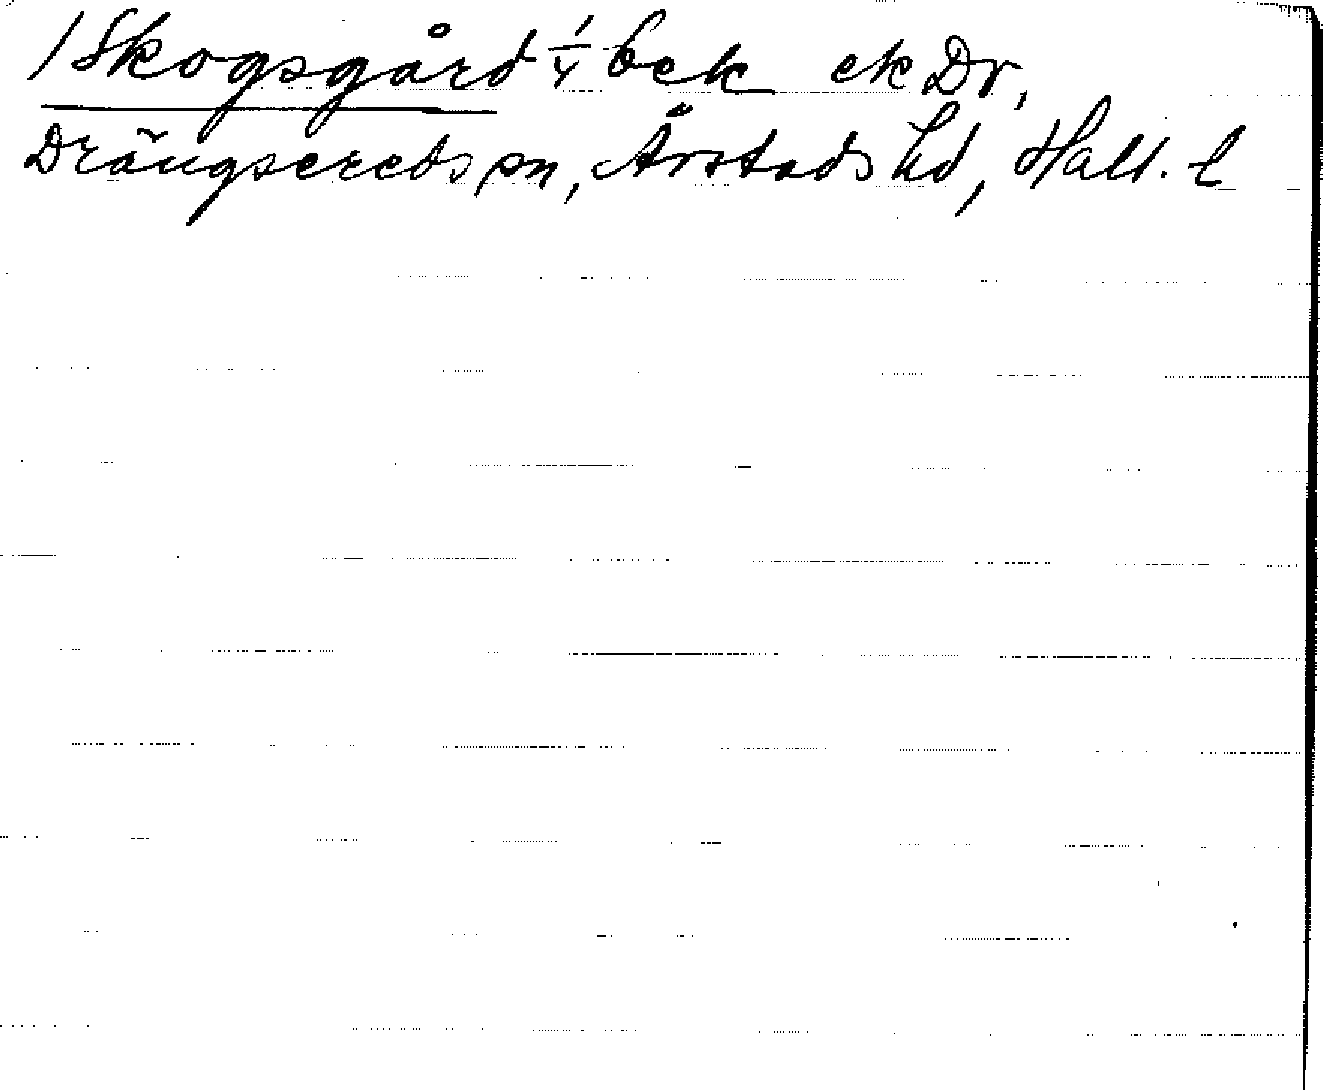 /Skogsgård 1/4 bek ek Dr,
Drängsereds sn, Årstads hd, Hall. l